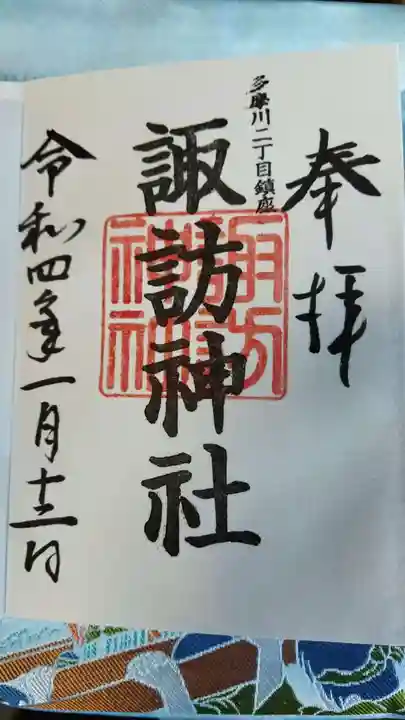 奉拝
多摩川二丁目鎮座
諏訪神社
令和四年一月十三日